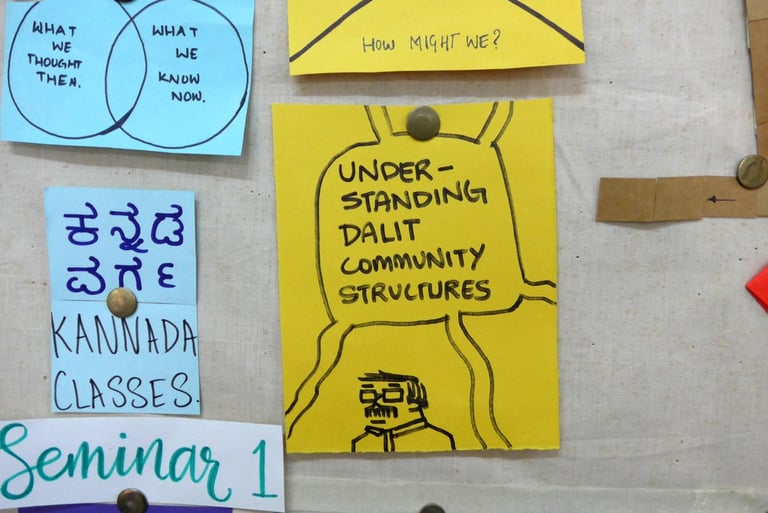 WHAT
WE
THOUGHT
THEN.
WHAT
WE
KNOW
NOW.
HOW MIGHT WE?
UNDER-
STANDING
DALIT
COMMUNITY
STRUCTURES
ಕನ್ನಡ
ವರ್ಗ
KANNADA
CLASSES.
Seminar 1